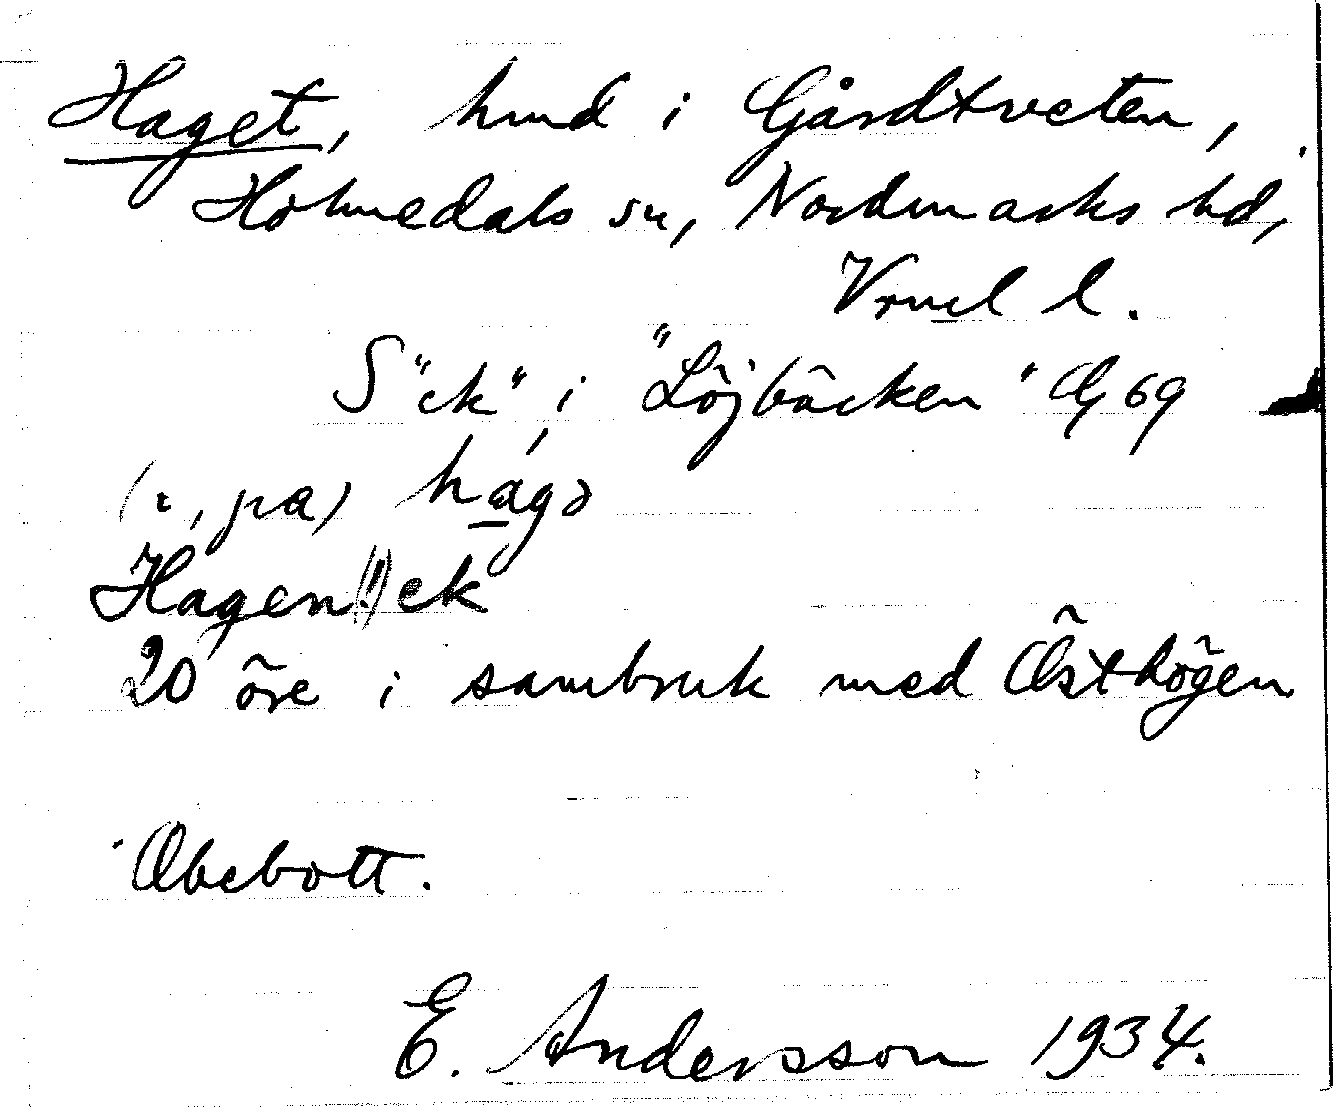 Haget, hmd i Gårdtveten,
Holmedals sn, Nordmarks hd,
Vrml l.
S "ck" i "Löjbäcken" Œ 69
(i, på) hagə
Hagen!) ek
20 öre i sambruk med Östhögen
Obebott.
E. Andersson 1934.